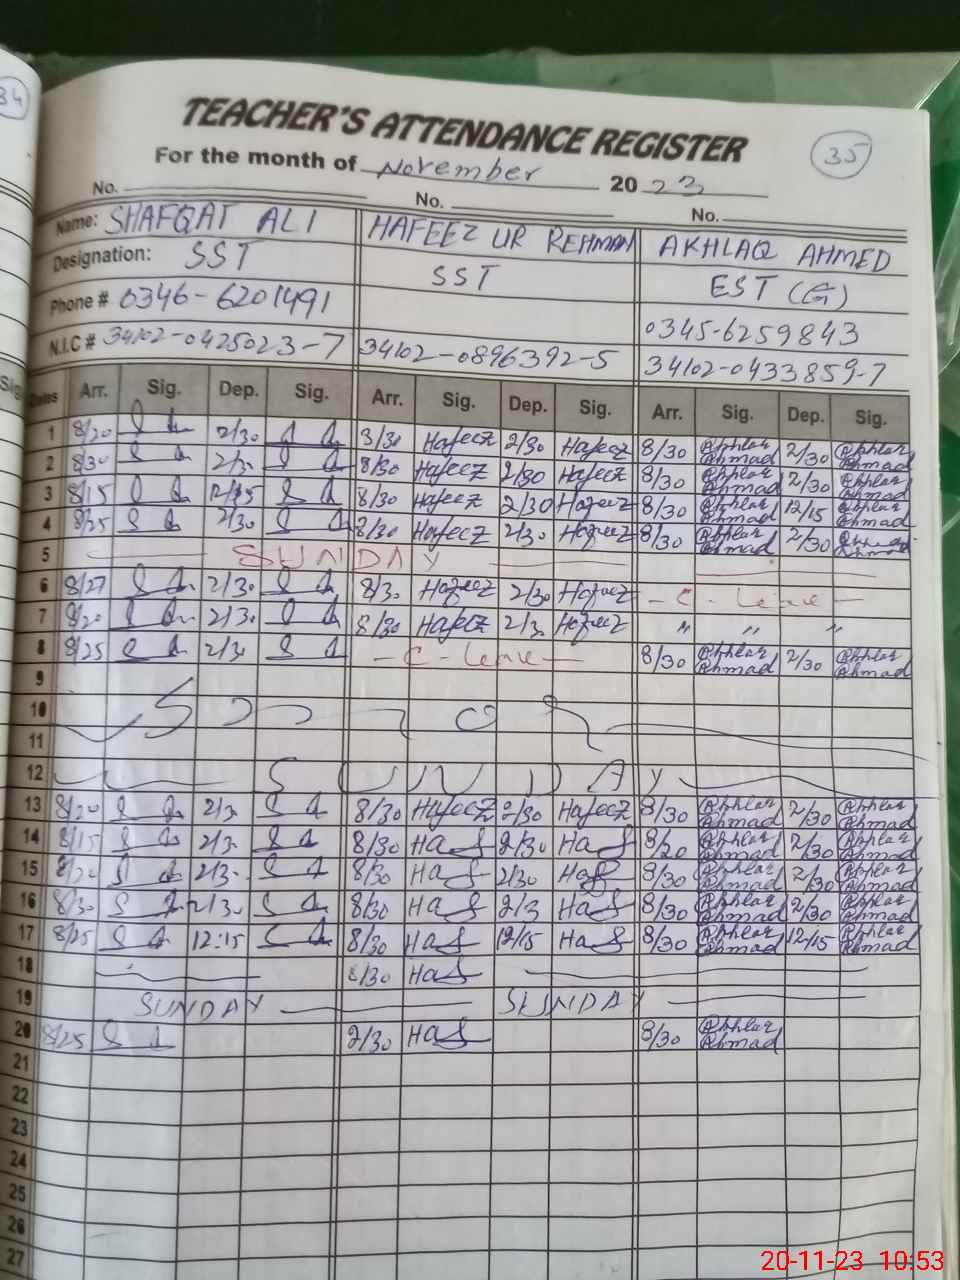 34
TEACHER'S ATTENDANCE REGISTER
35
For the month of November 2023
No. No. No.
Name: SHAFQAT ALI HAFEEZ UR REHMAN AKHLAQ AHMED
Designation: SST SST EST (G)
Phone # 0346-6201491 0345-6259843
N.I.C # 34102-0425023-7 34102-0896392-5 34102-0433859-7
Dates Arr. Sig. Dep. Sig. Arr. Sig. Dep. Sig. Arr. Sig. Dep. Sig.
1 8/20 2/30 3/30 Hafeez 2/30 Hafeez 8/30 Akhlaq Ahmad 2/30 Akhlaq Ahmad
2 8/30 2/30 8/30 Hafeez 2/30 Hafeez 8/30 Akhlaq Ahmad 2/30 Akhlaq Ahmad
3 8/15 12/15 8/30 Hafeez 2/30 Hafeez 8/30 Akhlaq Ahmad 12/15 Akhlaq Ahmad
4 8/25 2/30 8/30 Hafeez 2/30 Hafeez 8/30 Akhlaq Ahmad 2/30 Akhlaq Ahmad
5 SUNDAY
6 8/27 2/30 8/30 Hafeez 2/30 Hafeez - C - Leave -
7 8/20 2/30 8/30 Hafeez 2/3 Hafeez " " "
8 8/25 2/3 - C - Leave - 8/30 Akhlaq Ahmad 2/30 Akhlaq Ahmad
9
10
11
12 SUNDAY
13 8/20 2/3 8/30 Hafeez 2/30 Hafeez 8/30 Akhlaq Ahmad 2/30 Akhlaq Ahmad
14 8/15 2/3 8/30 Haf 2/30 Haf 8/20 Akhlaq Ahmad 2/30 Akhlaq Ahmad
15 8/20 2/3 8/30 Haf 2/30 Haf 8/30 Akhlaq Ahmad 2/30 Akhlaq Ahmad
16 8/30 2/30 8/30 Haf 2/3 Haf 8/30 Akhlaq Ahmad 2/30 Akhlaq Ahmad
17 8/25 12:15 8/30 Haf 12/15 Haf 8/30 Akhlaq Ahmad 12/15 Akhlaq Ahmad
18 8/30 Haf
19 SUNDAY SUNDAY
20 8/25 2/30 Haf 8/30 Akhlaq Ahmad
21
22
23
24
25
26
27
20-11-23 10:53